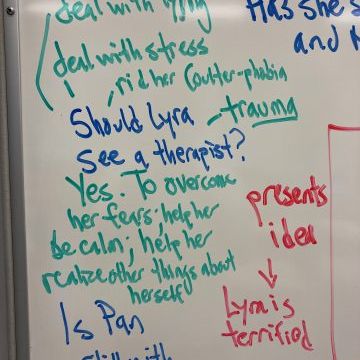 deal with
Has she s
and
deal with stress
rid her Coulter-phobia
Should Lyra
trauma
see a therapist?
Yes. To overcome
her fears; help her
be calm; help her
realize other things about
herself
presents
idea
Lyra is
terrified
Is Pan
still with